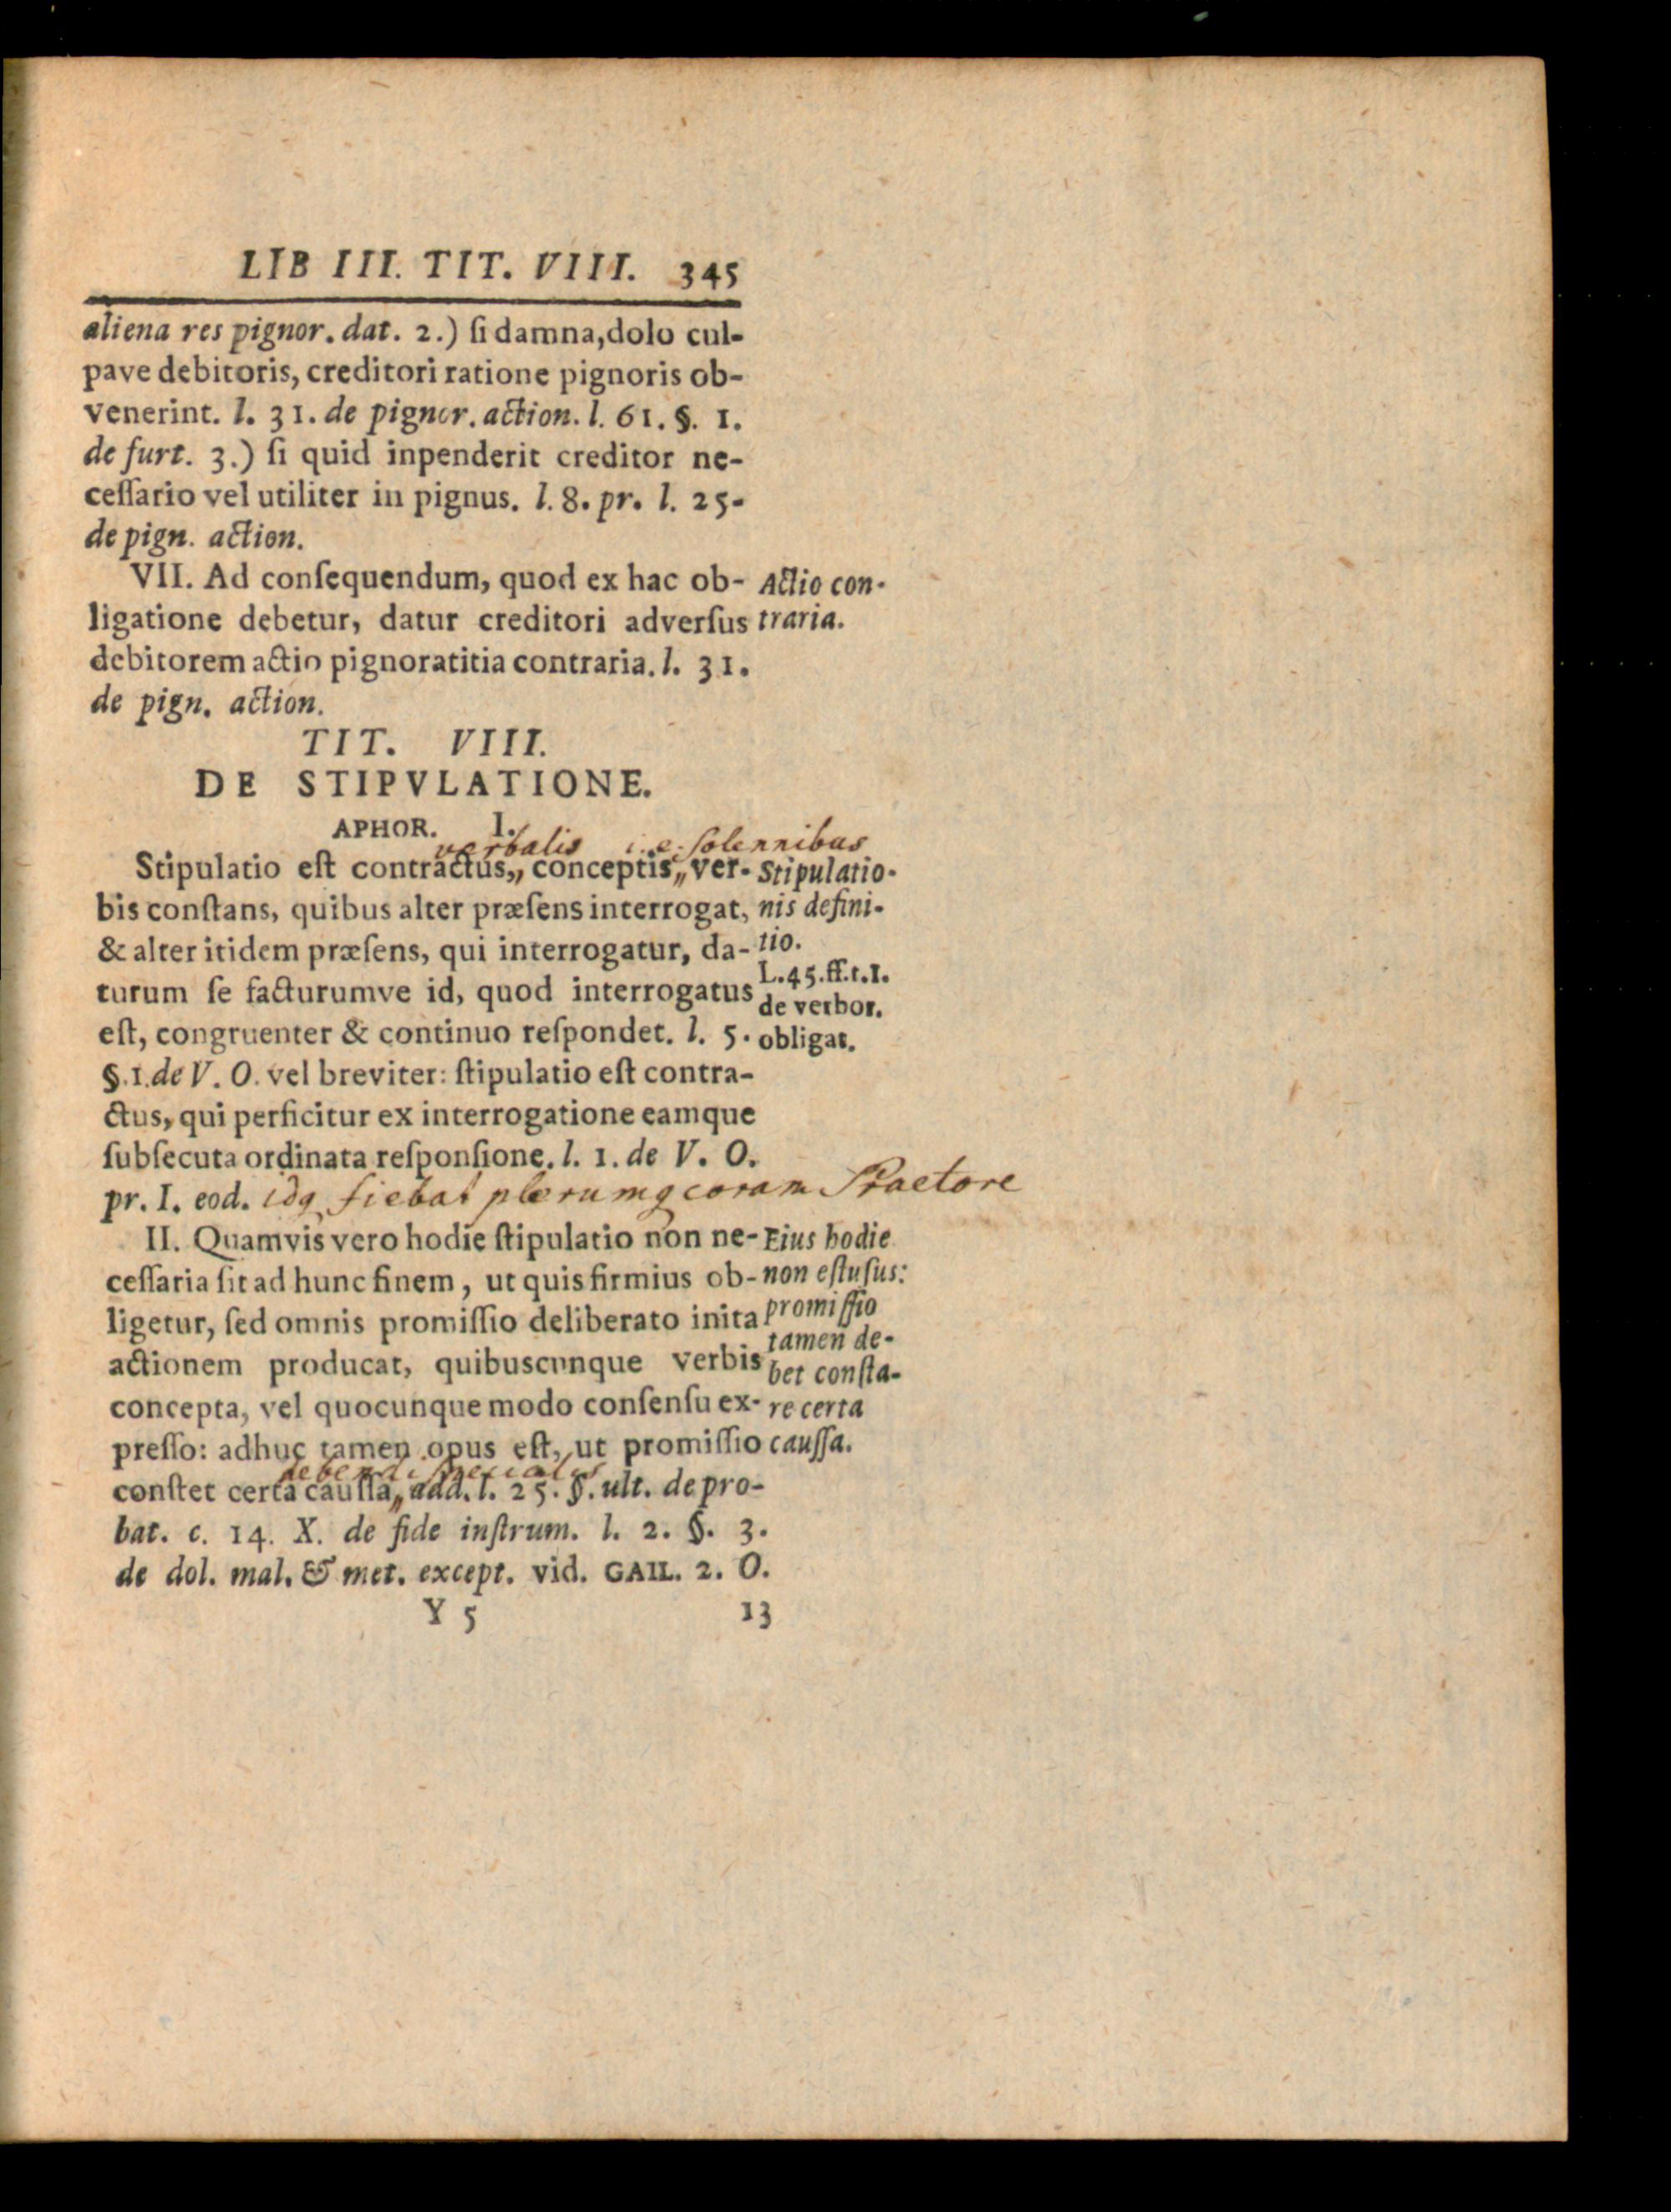 LIB III. TIT. VIII. 345
aliena res pignor. dat. 2.) ſi damna, dolo cul-
pave debitoris, creditori ratione pignoris ob-
venerint. l. 31. de pignor. action. l. 61. §. 1.
de furt. 3.) ſi quid inpenderit creditor ne-
ceſſario vel utiliter in pignus. l. 8. pr. l. 25-
de pign. action.
VII. Ad conſequendum, quod ex hac ob-
ligatione debetur, datur creditori adverſus
debitorem actio pignoratitia contraria. l. 31.
de pign. action.
Actio con-
traria.
TIT. VIII.
DE STIPVLATIONE.
APHOR. I.
verbalis i. e. solennibus
Stipulatio eſt contractus,, conceptis,, ver-
bis conſtans, quibus alter præſens interrogat,
& alter itidem præſens, qui interrogatur, da-
turum ſe facturumve id, quod interrogatus
eſt, congruenter & continuo reſpondet. l. 5.
§. 1. de V. O. vel breviter: ſtipulatio eſt contra-
ctus, qui perficitur ex interrogatione eamque
ſubſecuta ordinata reſponſione. l. 1. de V. O.
pr. I. eod. idq fiebat plerumq coram Praetore
Stipulatio-
nis defini-
tio.
L. 45. ff. t. I.
de verbor.
obligat.
II. Quamvis vero hodie ſtipulatio non ne-
ceſſaria ſit ad hunc finem, ut quis firmius ob-
ligetur, ſed omnis promiſſio deliberato inita
actionem producat, quibuscunque verbis
concepta, vel quocunque modo conſenſu ex-
preſſo: adhuc tamen opus eſt, ut promiſſio
debendi specialis
conſtet certa cauſſa,, add. l. 25. §. ult. de pro-
bat. c. 14. X. de fide inſtrum. l. 2. §. 3.
de dol. mal. & met. except. vid. GAIL. 2. O.
Eius hodie
non eſt uſus:
promiſſio
tamen de-
bet conſta-
re certa
cauſſa.
Y 5 13